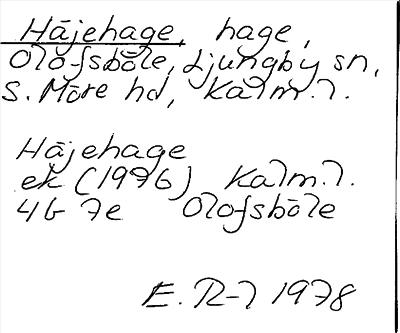 Häjehage, hage,
Olofsböle, Ljungby sn,
S. Möre hd, Kalm. l.
Häjehage
ek (1976) Kalm. l.
4G 7e Olofsböle
E. R-l 1978